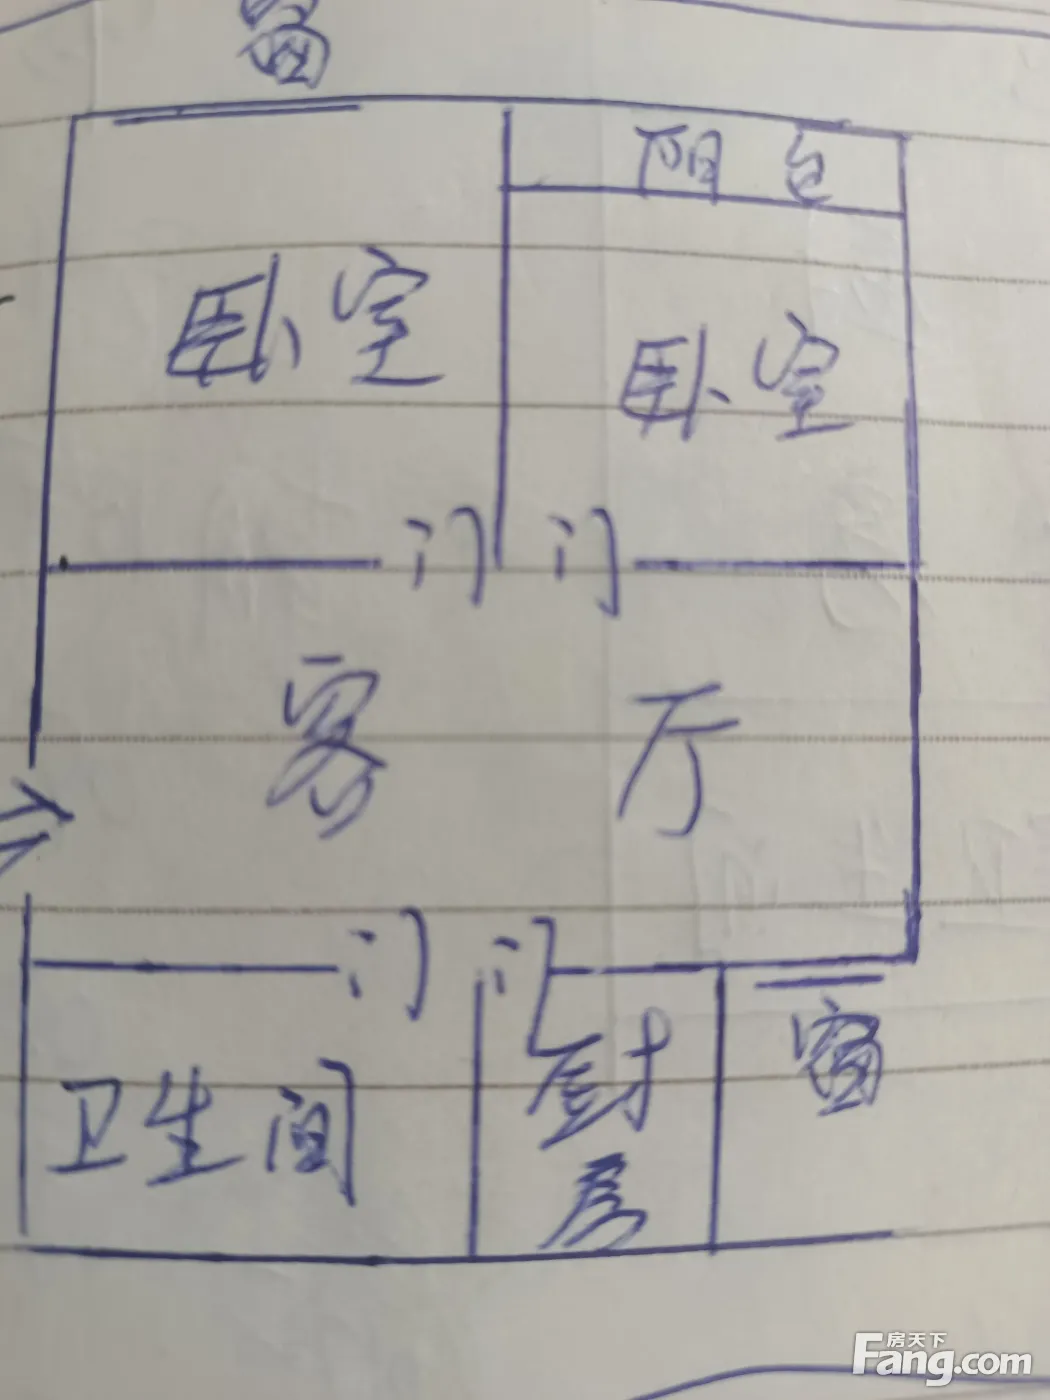 窗
阳台
卧室
卧室
门 门
客厅
门 门
卫生间
厨房
窗
房天下
Fang.com